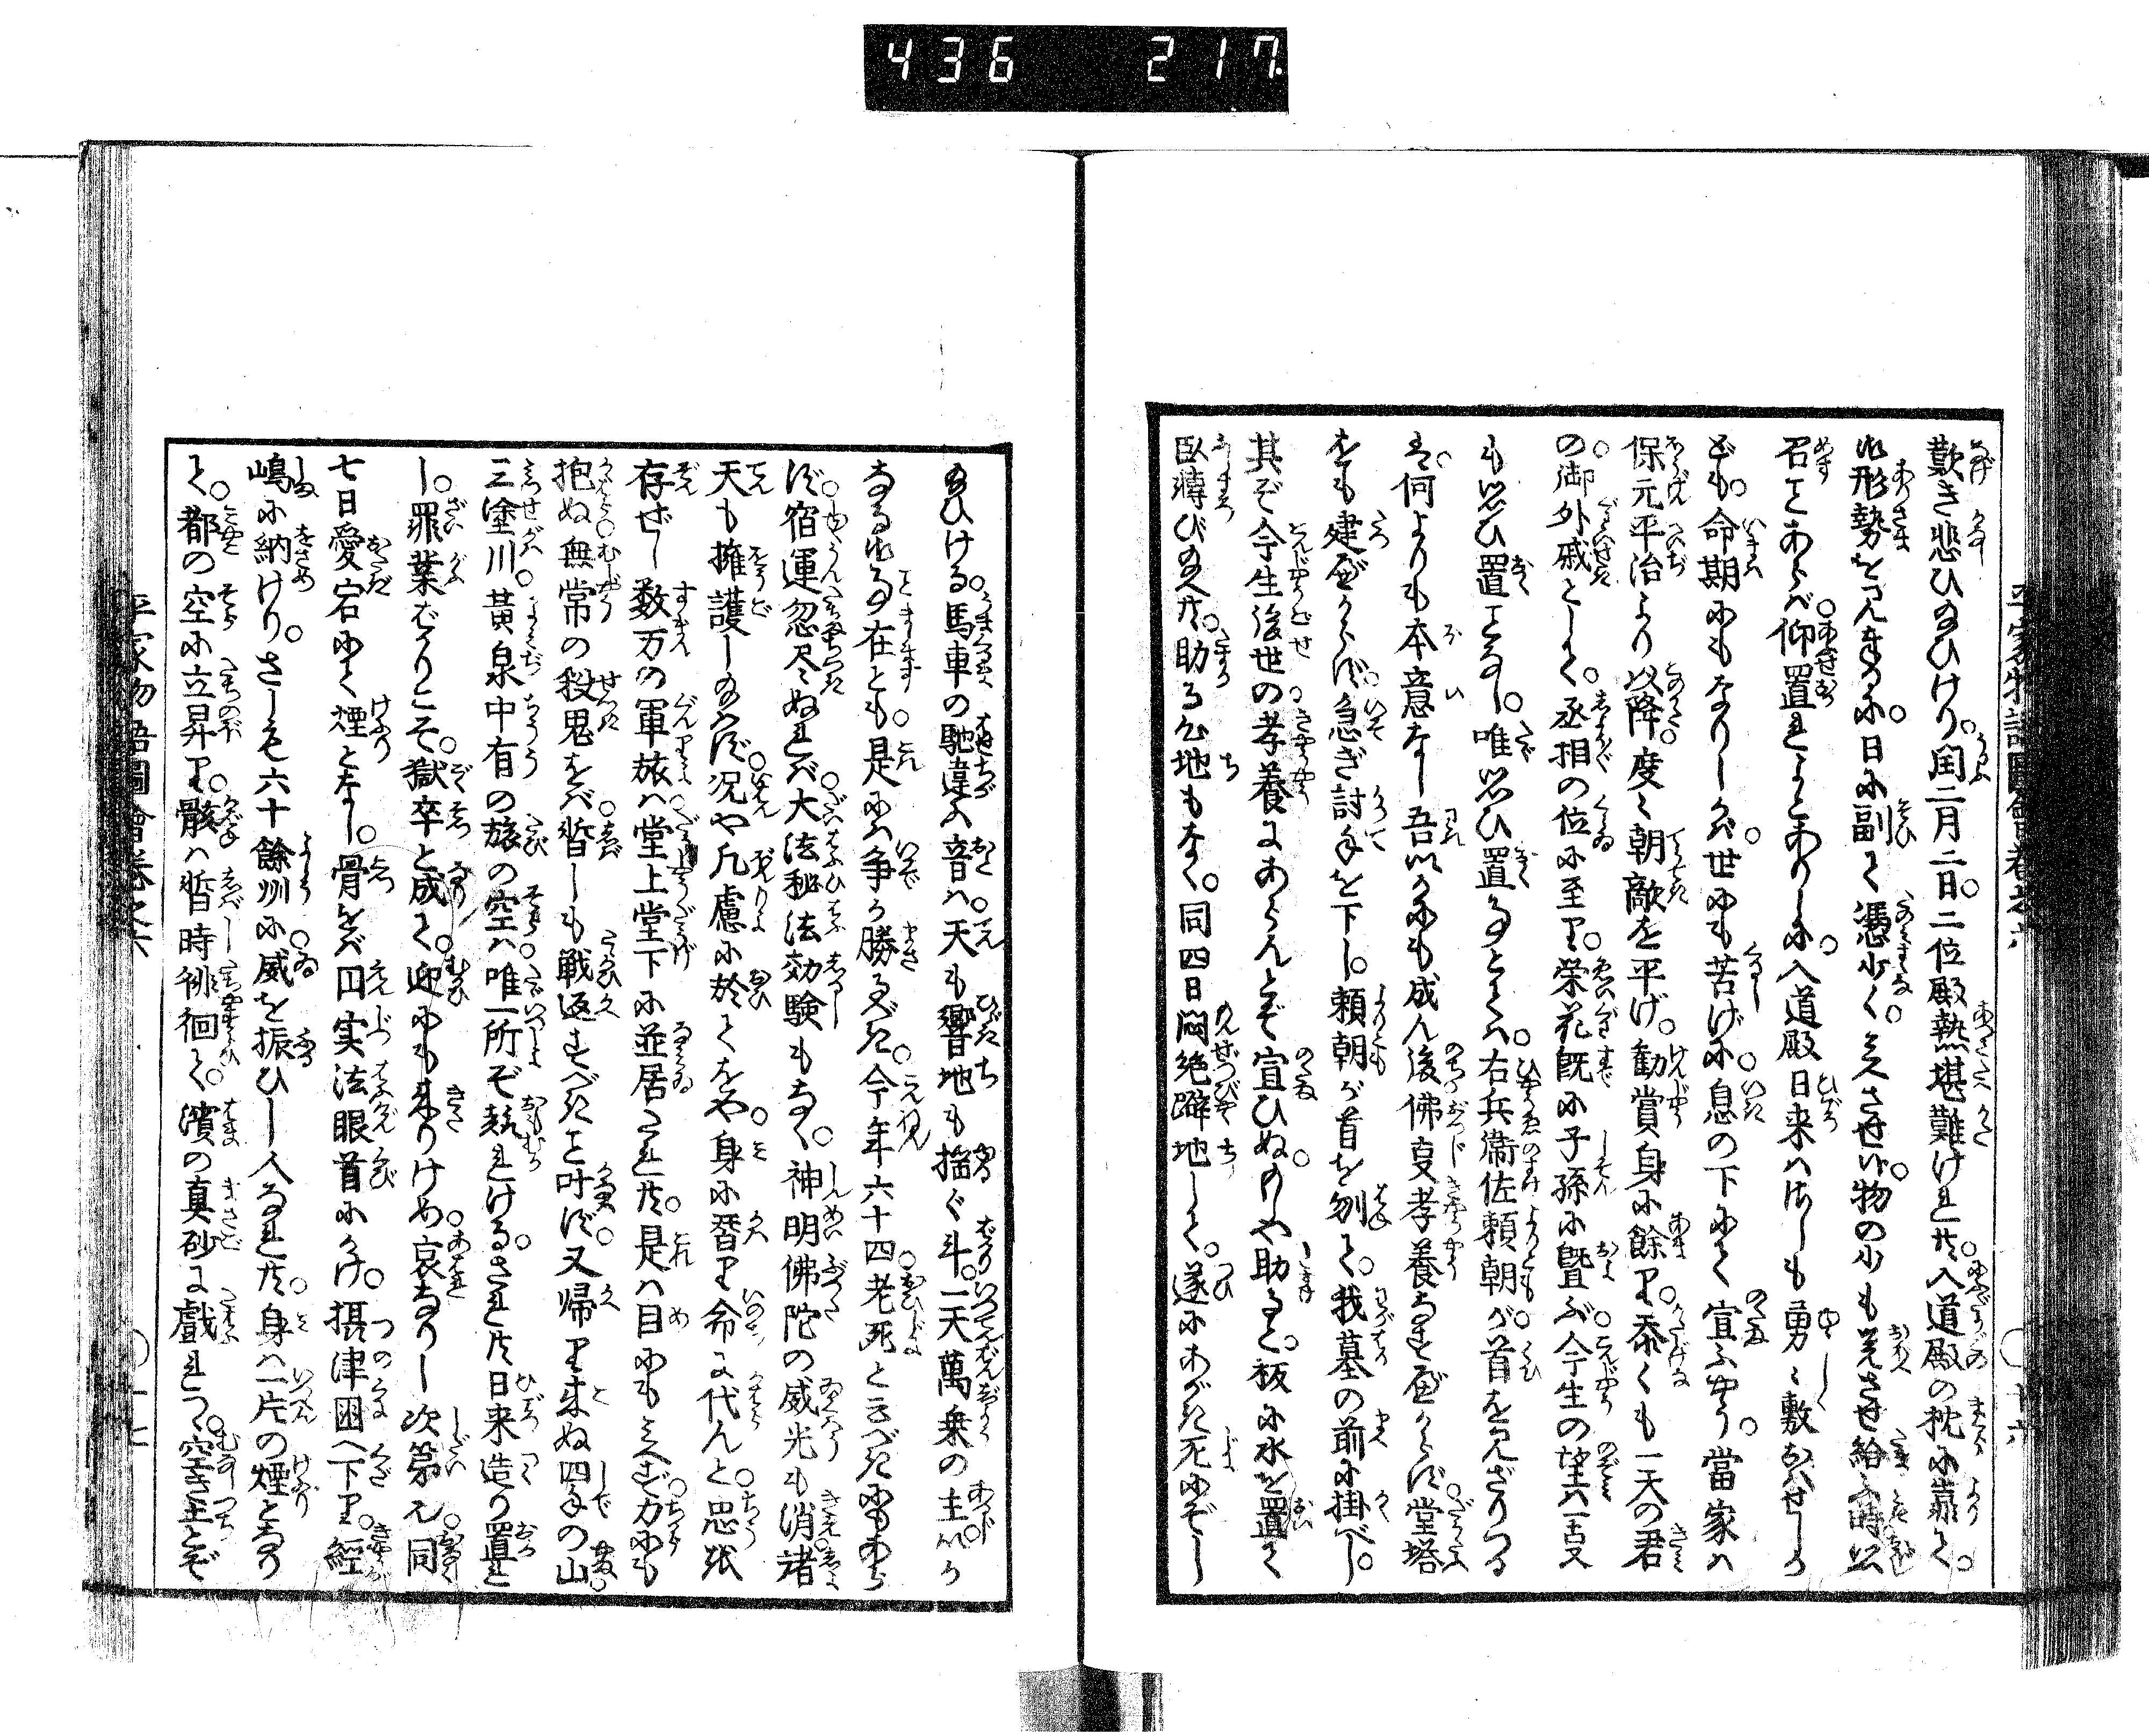 436 217.
平家物語圖會卷之六 〇十六
歎き悲ひ給ひけり。閏二月二日。二位殿熱堪難けれ共。入道殿の枕に靠て。
御形勢を見奉るに。日に副て憑少く。見えさせ給ふ。物の少も覚させ給ふ時思
召ことあらば。仰置れよとありしに。入道殿日来はさしも勇々敷おはせしか
ども。命期にもなりしかば。世にも苦げに。息の下にて宣ふやう。當家は
保元平治より以降。度々朝敵を平げ。勧賞身に餘り。忝くも一天の君
の御外戚として。丞相の位に至り。栄花既に子孫に曁ぶ。今生の望は一支
も思ひ置ことなし。唯思ひ置事とては。右兵衞佐頼朝が首を見ざりつる
こそ。何よりも本意なし。吾いかにも成ん後佛叓孝養なす べからず。堂塔
をも建べからず。急ぎ討手を下し。頼朝が首を刎て。我墓の前に掛べし。
其ぞ今生後世の孝養にあらんとぞ宣ひぬ。もしや助ると。板に水を置て
臥轉び給へ共。助る心地もなく。同四日悶絶躃地して。遂にあがき死にぞし
給ひける。馬車の馳違ふ音は。天も響地も揺ぐ斗。一天萬乗の主いか
なる御事在とも。是には争か勝るべき。今年六十四老死と云べきにもあら
ず。宿運忽尽ぬれば。大法秘法効験もなく。神明佛陀の威光も消。諸
天も擁護し給はず。况や凡慮に於てをや。身に替り命に代んと。忠を
存ぜし数万の軍旅は。堂上堂下に並居たれ共。是は目にも見えず。力にも
抱ぬ無常の殺鬼をば。暫しも戦返すべきこと叶ず。又帰り来ぬ四手の山。
三塗川。黄泉中有の旅の空は。唯一所ぞ赴れける。され共日来造り置れ
し。罪業ばかりこそ。獄卒と成て。迎にも来りけめ。哀なりし次第也。同
七日愛宕にて煙となし。骨をば円実法眼首にかけ。摂津国へ下り。經
嶋に納けり。さしも六十餘州に威を振ひし人なれ共。身は一片の煙となり
て。都の空に立昇り。骸は暫時徘徊て。濱の真砂に戯れつゝ。空き土とぞ
平家物語圖會卷之六 〇十七